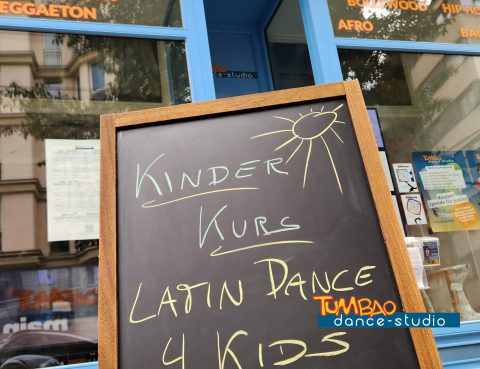 REGGAETON
BOLLYWOOD
HIP-HO
AFRO
BA
dance-studio
KINDER
KURS
LATIN DANCE
4 KIDS
TUMBAO
dance-studio